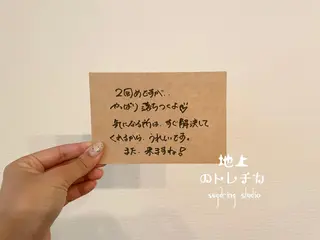 2回めですが、、
やっぱり落ちつくよ
気になる所は、すぐ解決して
くれるから、うれしいです。
また、来ますね!
地上
のトレチカ